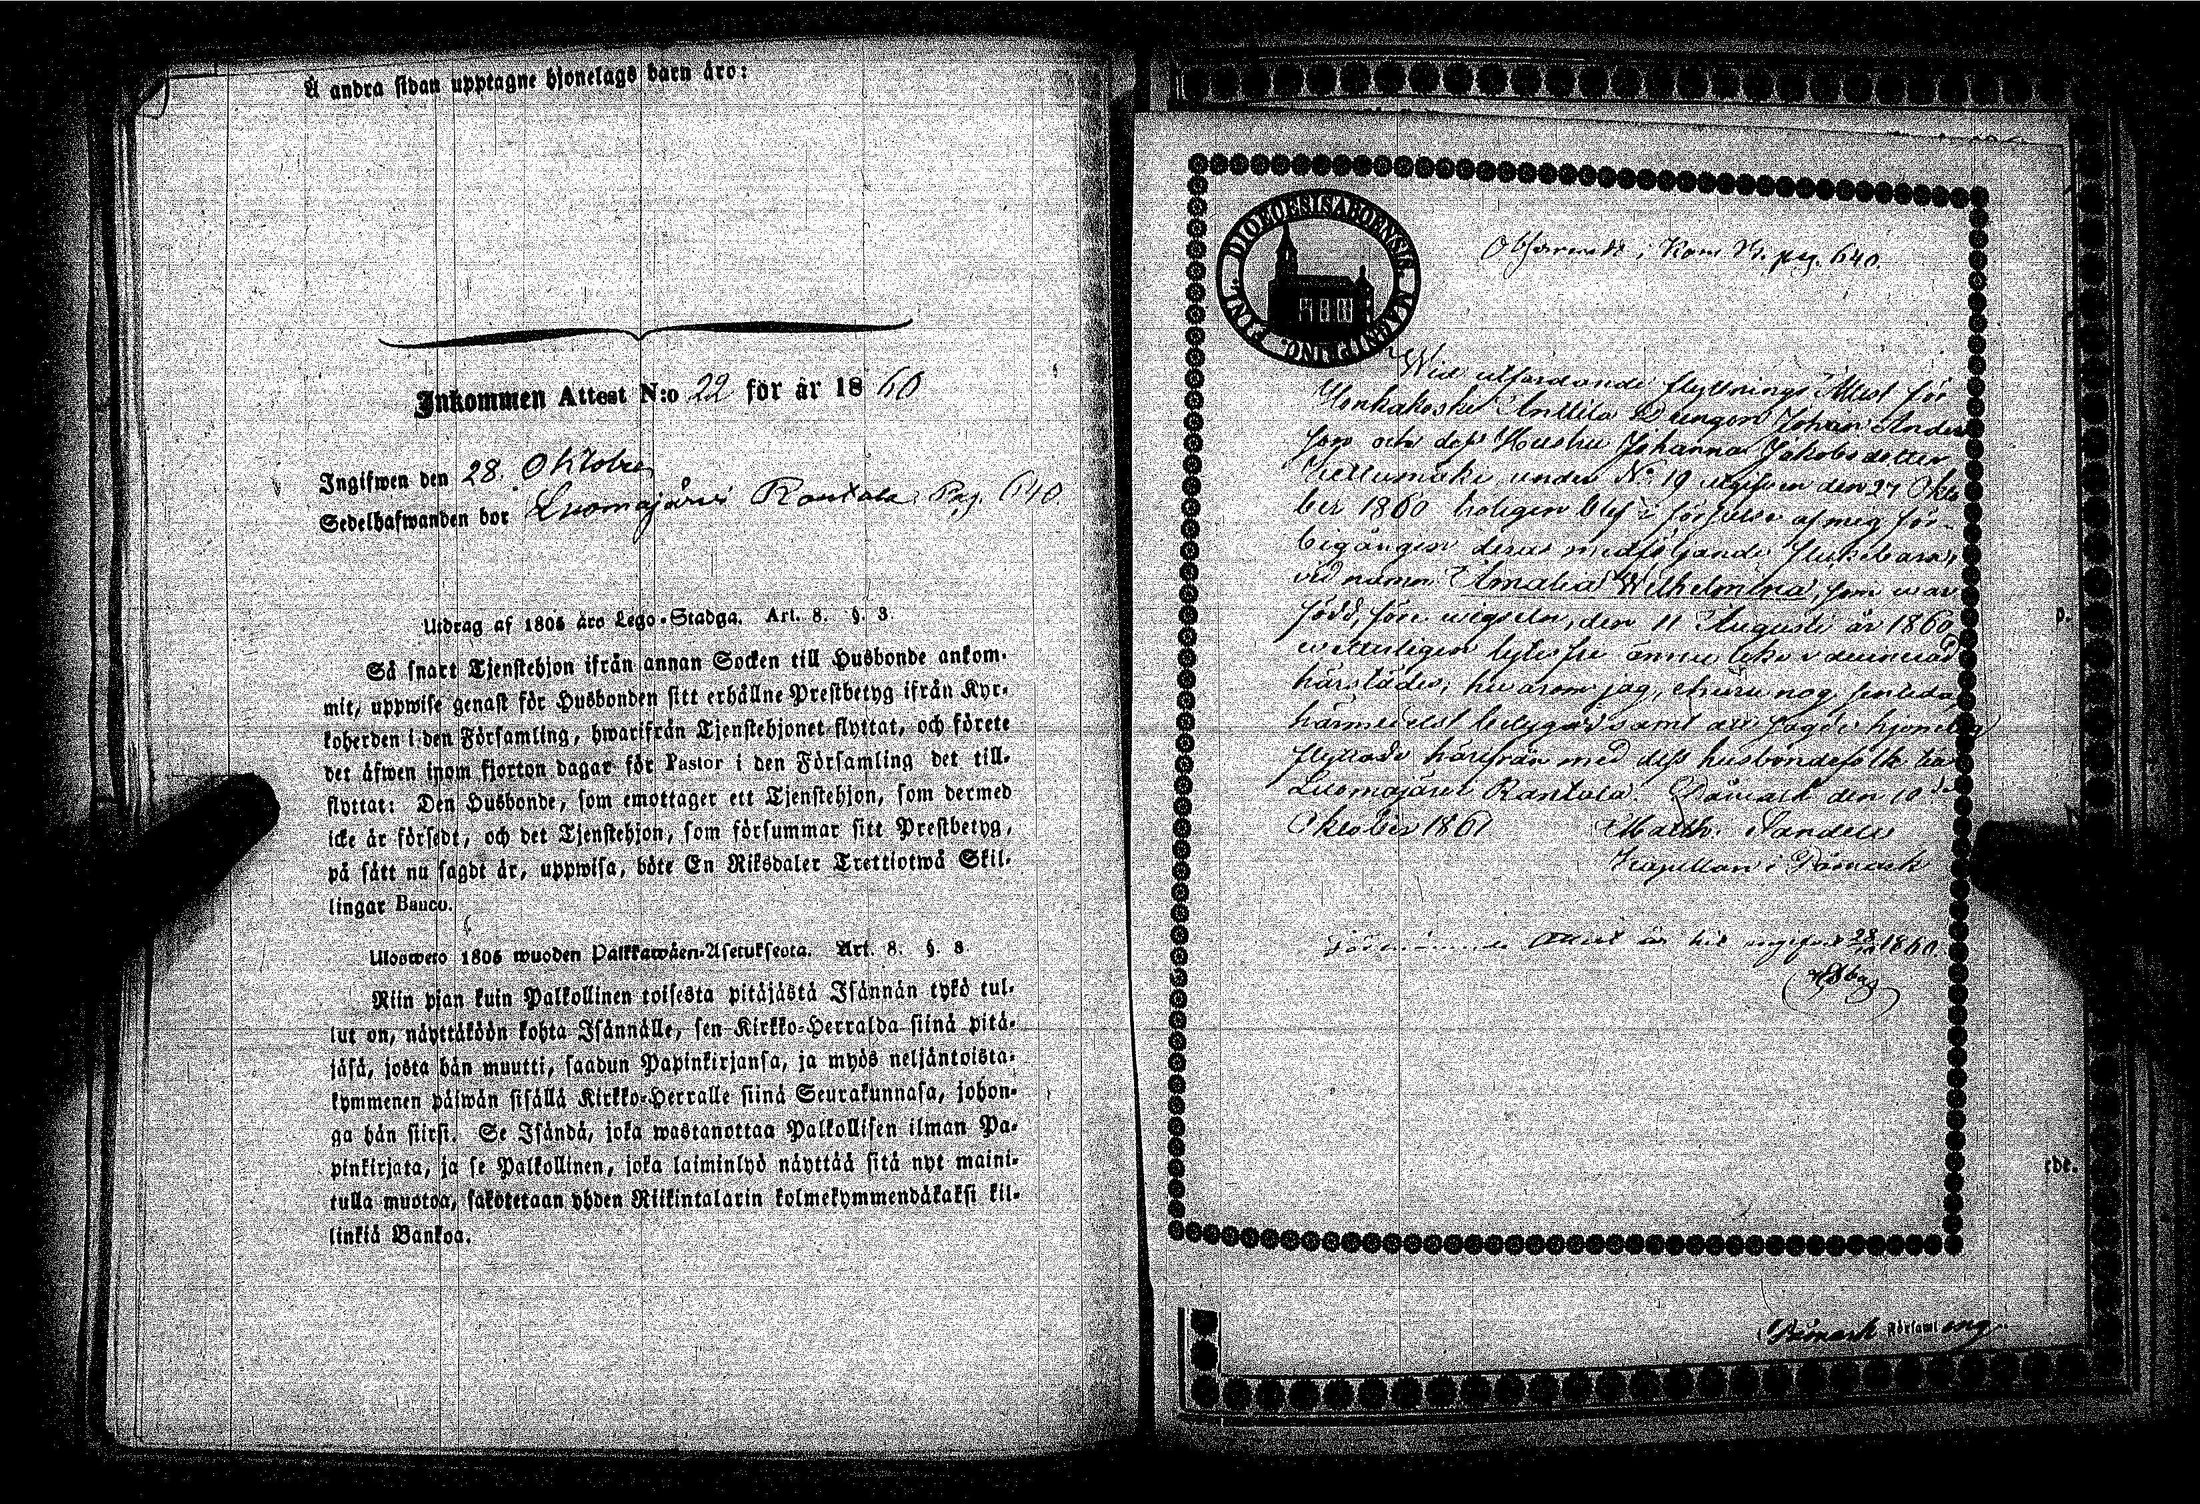 Å andra sidan upptagne hjonelags barn äro:
Inkommen Attest N:o 22 för år 1860
Ingifwen den 28. Oktober
Sedelhafwanden bor Luomajärvi Rantala Pag. 640.
Utdrag af 1805 års Lego-Stadga. Art. 8. §. 3.
Så snart Tjenstehjon ifrån annan Socken till Husbonde ankom-
mit, uppwise genast för Husbonden sitt erhållne Prestbetyg ifrån Kyr-
koherden i den Församling, hwarifrån Tjenstehjonet flyttat, och förete
det äfwen inom fjorton dagar för Pastor i den Församling det till-
flyttat: Den Husbonde, som emottager ett Tjenstehjon, som dermed
icke är försedt, och det Tjenstehjon, som försummar sitt Prestbetyg,
på sätt nu sagdt är, uppwisa, böte En Riksdaler Trettiotwå Skil-
lingar Banco.
Ulosweto 1805 wuoden Palkkawäen-Asetuksesta. Art. 8. §. 3
Niin pian kuin Palkollinen toisesta pitäjästä Isännän tykö tul-
lut on, näyttäköön kohta Isännälle, sen Kirkko-Herralda siinä pitä-
jäsä, josta hän muutti, saadun Papinkirjansa, ja myös neljäntoista-
kymmenen päiwän sisällä Kirkko-Herralle siinä Seurakunnasa, johon-
ga hän siirsi. Se Isändä, joka wastanottaa Palkollisen ilman Pa-
pinkirjata, ja se Palkollinen, joka laiminlyö näyttää sitä nyt maini-
tulla muotoa, sakotetaan yhden Riikintalarin kolmekymmendäkaksi kil-
linkiä Bankoa.
DIOECESIS ABOENSIS MAGNI PRINC. FINL.
Observeradt i Kom. B. pag. 640.
Wid utfärdande flyttnings Attest för
Honkakoski Anttila Drängen Johan Anders
son och dess Hustru Johanna Jakobsdotter
under N:o 19 utgifven den 27 Okto
ber 1860 blef af mig för-
bigången deras medföljande flickebarn,
vid namn Amalia Wilhelmina, som war
född, före wigseln, den 11 Augusti år 1860,
härstädes, hwarom jag, ännu nog
härmedelst betygar samt att sagde hjonelag
flyttade härifrån med dess husbondefolk till
Luomajärvi Rantala. Påmark den 10:de
Oktober 1861 Math. Tandelin
Kapellan i Påmark
Attest är hit ingifven 28/10 1860.
p.
rdt.
Påmark Församling